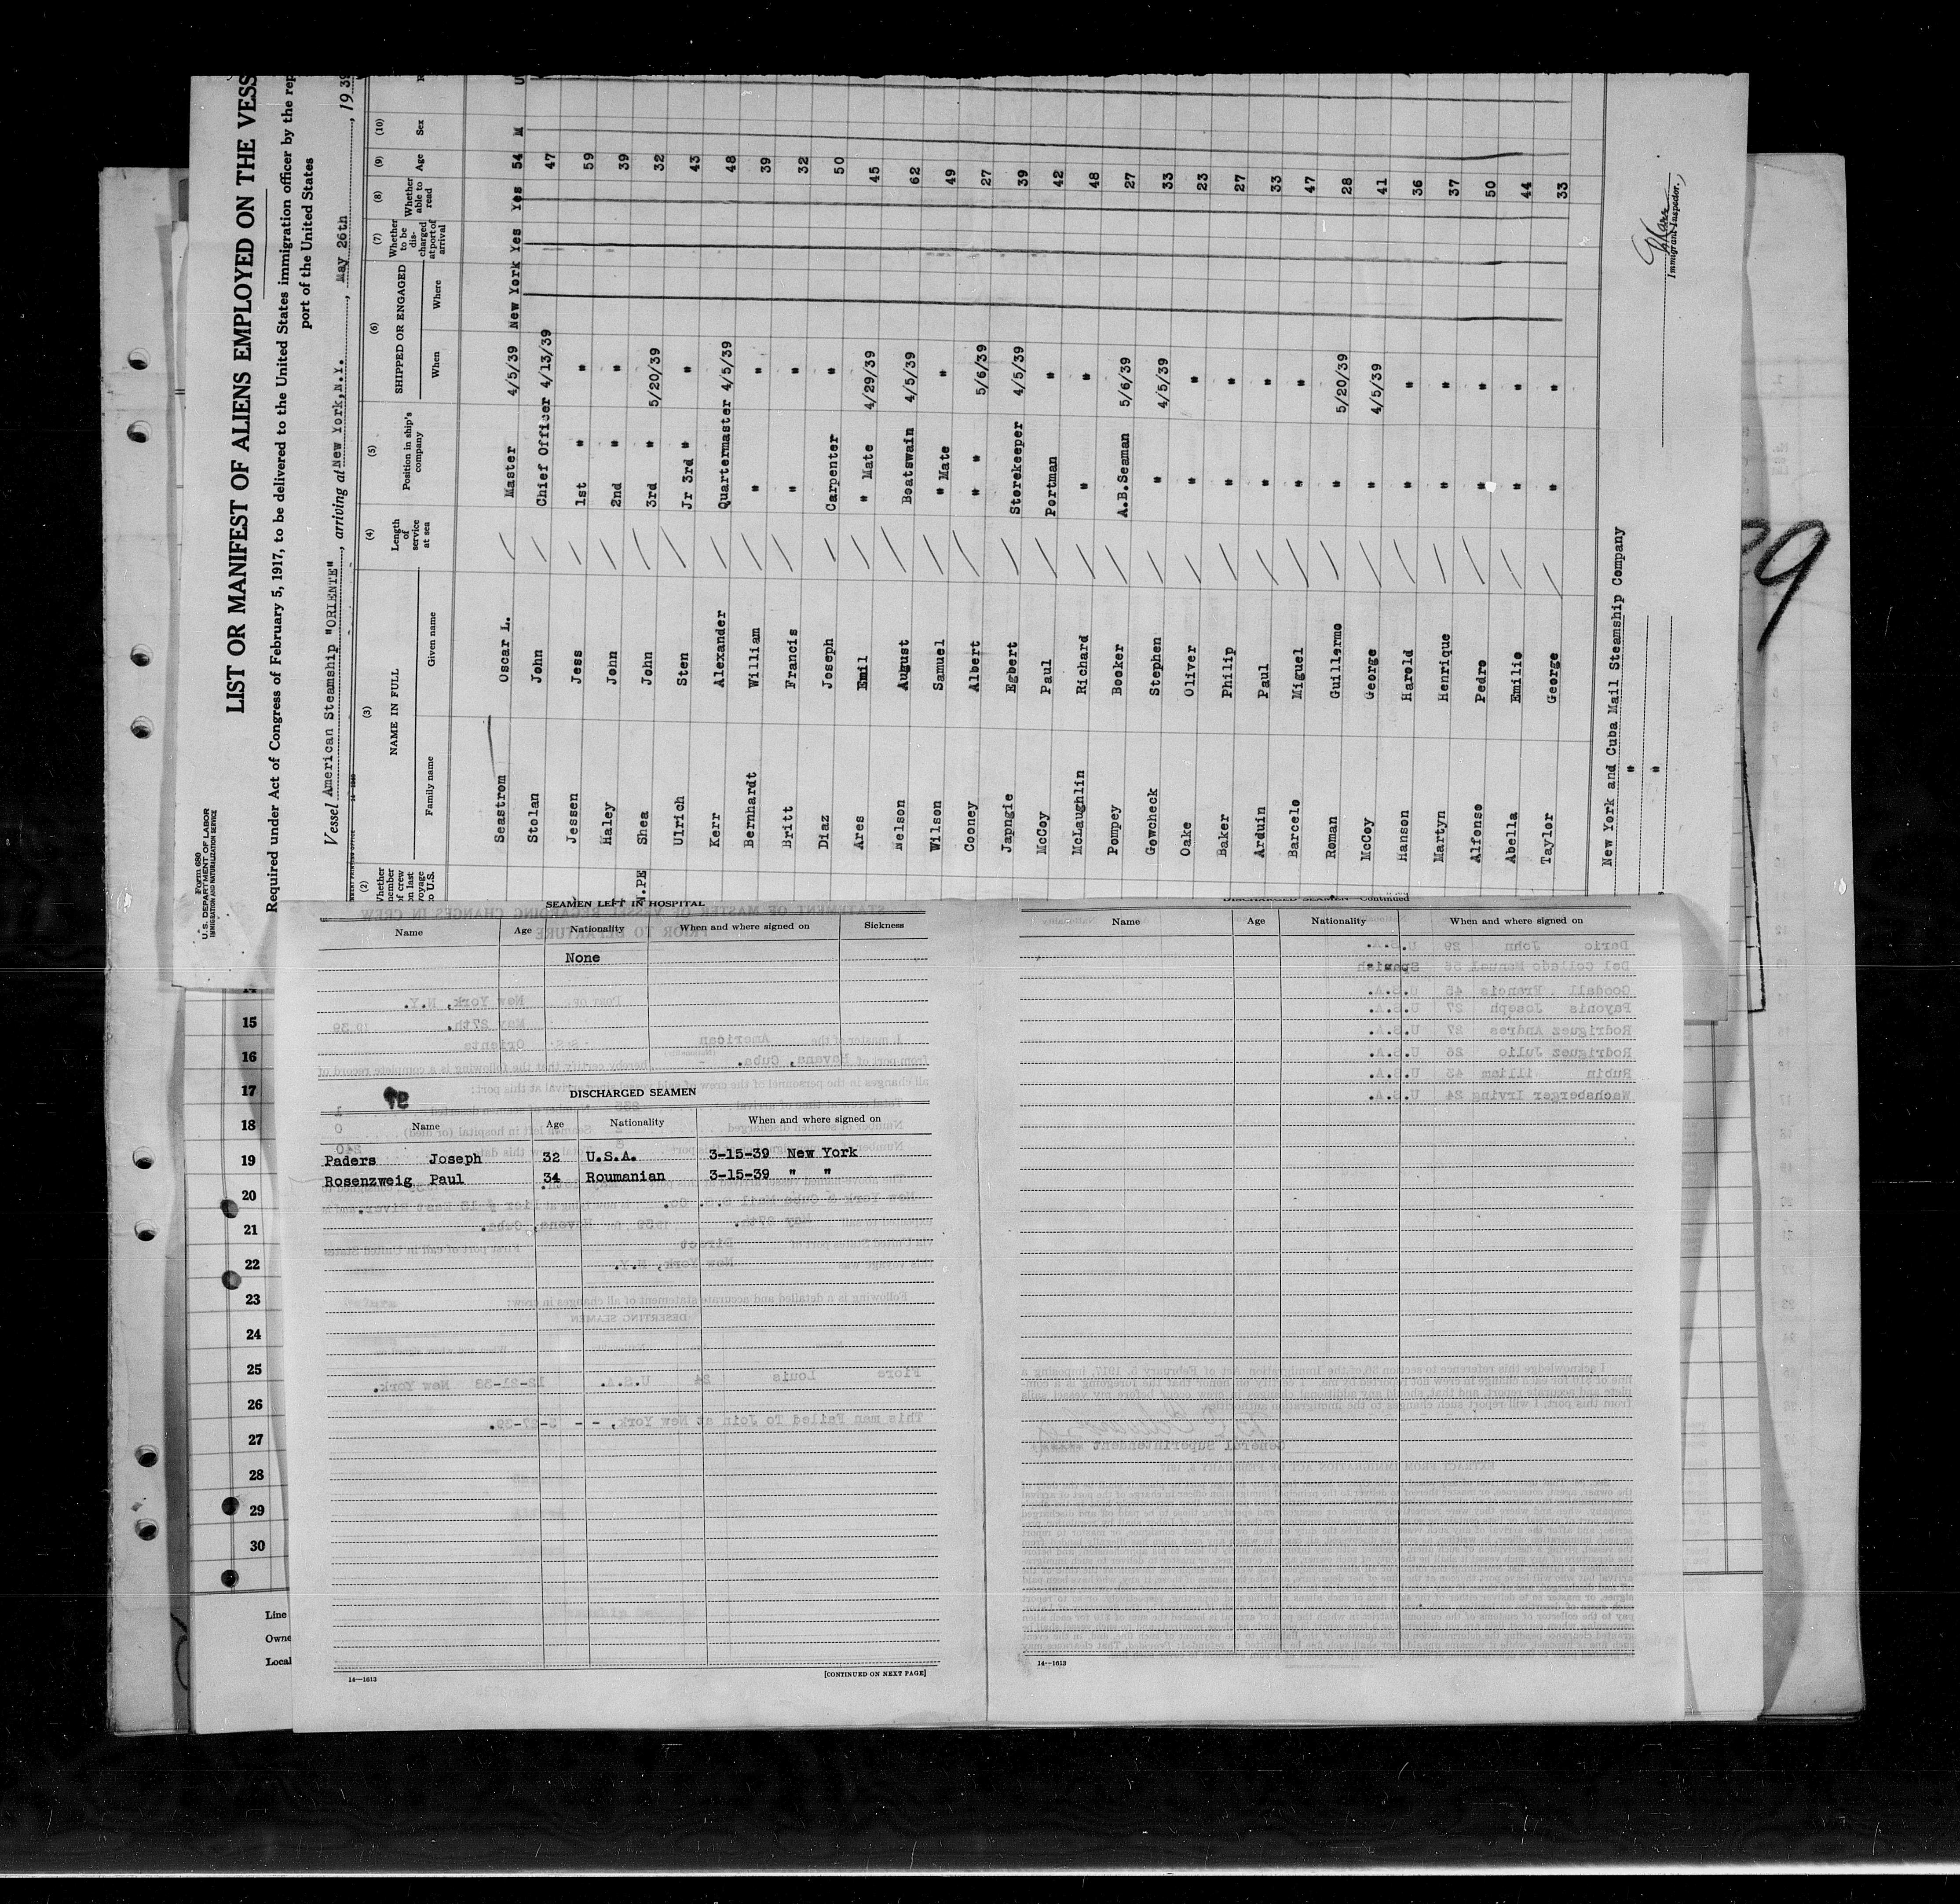 Form 680
U. S. DEPARTMENT OF LABOR
IMMIGRATION AND NATURALIZATION SERVICE
LIST OR MANIFEST OF ALIENS EMPLOYED ON THE VESS
Required under Act of Congress of February 5, 1917, to be delivered to the United States immigration officer by the rep
port of the United States
Vessel American Steamship "ORIENTE", arriving at New York, N.Y., May 26th, 1939
(2) (3) (4) (5) (6) (7) (8) (9) (10)
Whether member of crew on last voyage to U.S.
NAME IN FULL
Family name Given name
Length of service at sea
Position in ship's company
SHIPPED OR ENGAGED
When Where
Whether to be discharged at port of arrival
Whether able to read
Age
Sex
Seastrom Oscar L. Master 4/5/39 New York Yes Yes 54 M U
Stolan John Chief Officer 4/13/39 47
Jessen Jess 1st " " 59
Haley John 2nd " " 39
Shea John 3rd " 5/20/39 32
Ulrich Sten Jr 3rd " " 43
Kerr Alexander Quartermaster 4/5/39 48
Bernhardt William " " 39
Britt Francis " " 32
Diaz Joseph Carpenter " 50
Ares Emil " Mate 4/29/39 45
Nelson August Boatswain 4/5/39 62
Wilson Samuel " Mate " 49
Cooney Albert " " 5/6/39 27
Japngie Egbert Storekeeper 4/5/39 39
McCoy Paul Portman " 42
McLaughlin Richard " " 48
Pompey Booker A.B.Seaman 5/6/39 27
Gowcheck Stephen " 4/5/39 33
Oake Oliver " " 23
Baker Philip " " 27
Arduin Paul " " 33
Barcelo Miguel " " 47
Roman Guillermo " 5/20/39 28
McCoy George " 4/5/39 41
Hanson Harold " " 36
Martyn Henrique " " 37
Alfonso Pedro " " 50
Abella Emilio " " 44
Taylor George " " 33
New York and Cuba Mail Steamship Company
"
"
Immigrant Inspector.
39
SEAMEN LEFT IN HOSPITAL
Name Age Nationality When and where signed on Sickness
None
DISCHARGED SEAMEN
Name Age Nationality When and where signed on
Paders Joseph 32 U.S.A. 3-15-39 New York
Rosenzweig Paul 34 Roumanian 3-15-39 " "
14—1613
[CONTINUED ON NEXT PAGE]
DISCHARGED SEAMEN—Continued
Name Age Nationality When and where signed on
14—1613
15
16
17
18
19
20
21
22
23
24
25
26
27
28
29
30
Line
Owne
Local